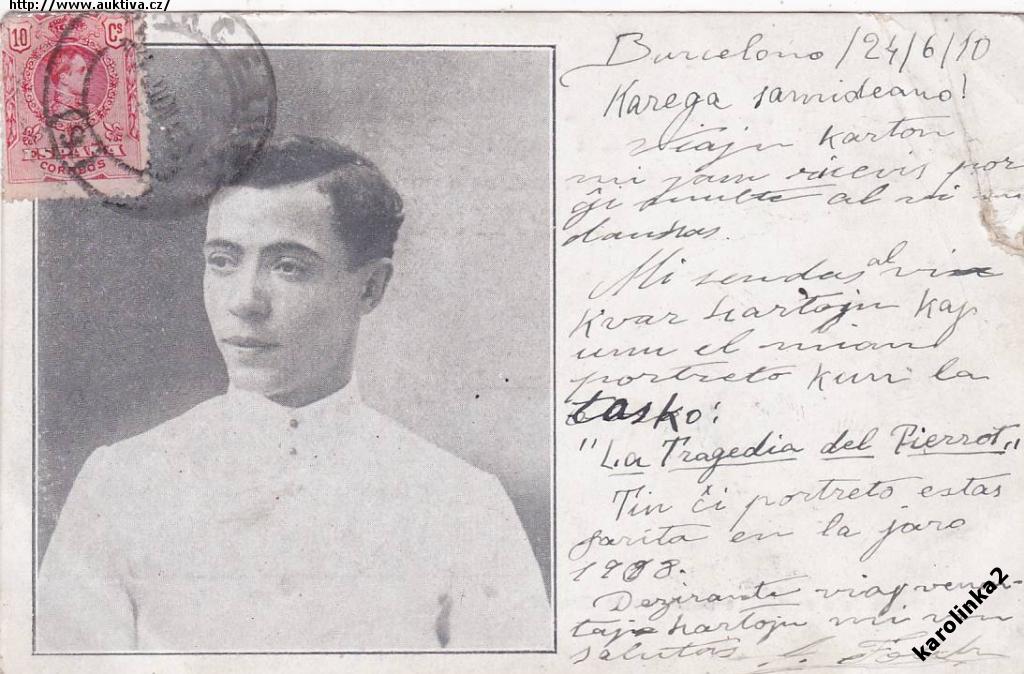 http://www.auktiva.cz/
10 Cs
ESPAÑA
CORREOS
Barcelono /24/6/10
Karega samideano!
Viajn karton
mi jam ricevis por
ĝi multe al vi mi
dankas.
Mi sendas al vi
kvar kartojn kaj
unu el mian
portreto kun la
tasko:
"La Tragedia del Pierrot"
Tin ĉi portreto estas
farita en la jaro
1908.
Dezirante viajn venon-
tajn kartojn mi vin
salutas
karolinka2